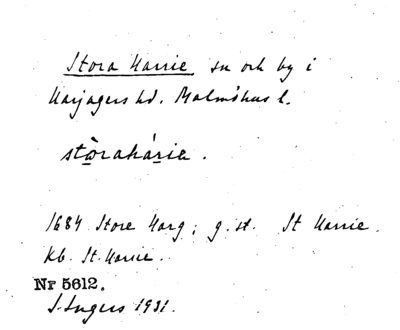 Stora Harrie sn och by i
Harjagers hd. Malmöhus l.
stòrahárie.
1684 Store Harg; g. st. St Harrie.
Kb. St. Harrie.
Nr 5612.
I. Ingers 1931.